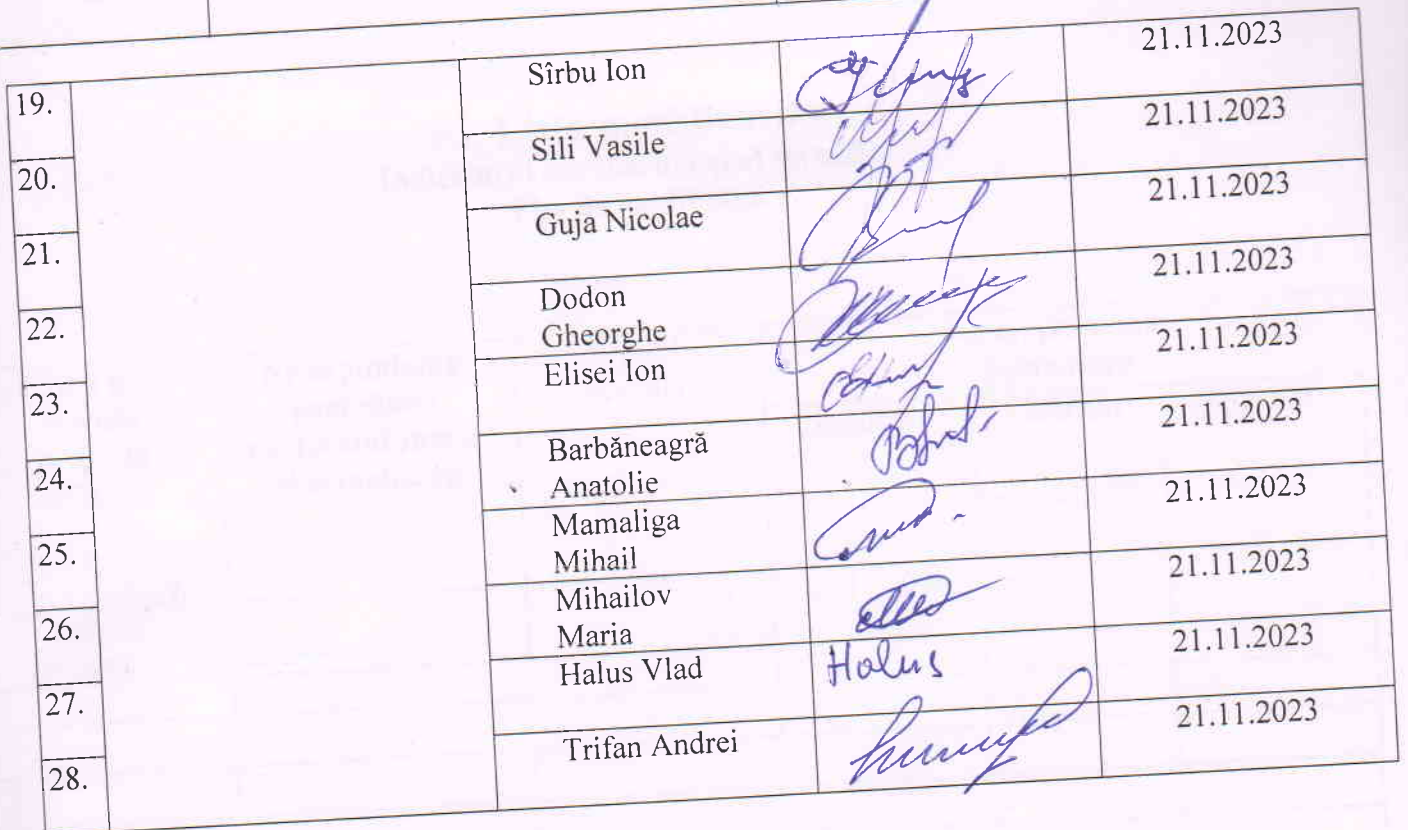 19.
Sîrbu Ion
21.11.2023
20.
Sili Vasile
21.11.2023
21.
Guja Nicolae
21.11.2023
22.
Dodon
Gheorghe
21.11.2023
23.
Elisei Ion
21.11.2023
24.
Barbăneagră
Anatolie
21.11.2023
25.
Mamaliga
Mihail
21.11.2023
26.
Mihailov
Maria
21.11.2023
27.
Halus Vlad
Halus
21.11.2023
28.
Trifan Andrei
21.11.2023